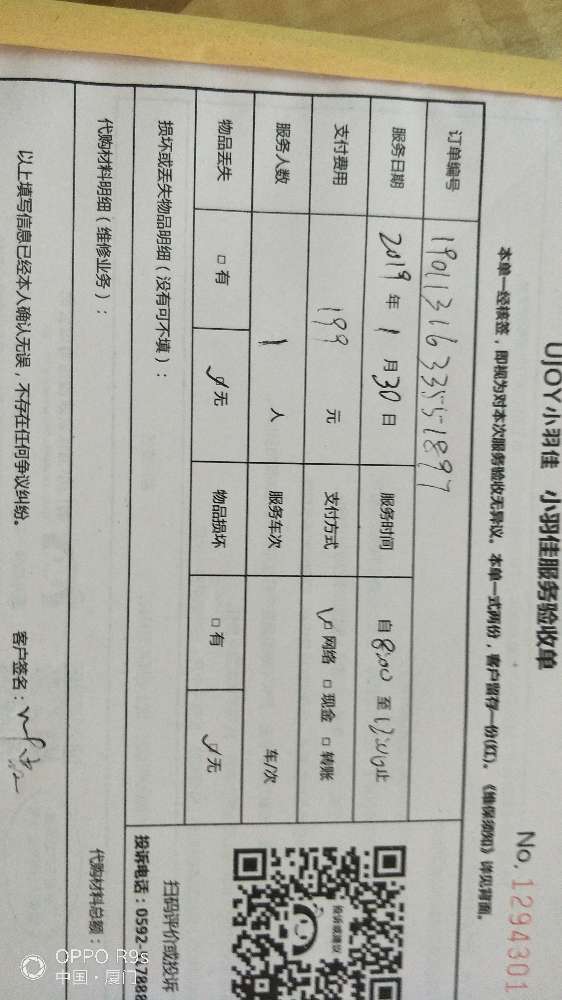 UJOY小羽佳 小羽佳服务验收单
No. 1294301
本单一经核签，即视为对本次服务验收无异议。本单一式两份，客户留存一份(红)。《维保须知》详见背面。
订单编号 190113163355 1897
服务日期 2019 年 1 月 30 日 服务时间 自 8:00 至 12:00 止
支付费用 199 元 支付方式 ☑ 网络 □ 现金 □ 转账
服务人数 1 人 服务车次 车/次
物品丢失 □ 有 ☑ 无 物品损坏 □ 有 ☑ 无
损坏或丢失物品明细（没有可不填）：
投诉或建议
扫码评价或投诉
投诉电话：0592-
代购材料明细（维修业务）： 代购材料总额：
以上填写信息已经本人确认无误，不存在任何争议纠纷。 客户签名：
OPPO R9s
中国·厦门